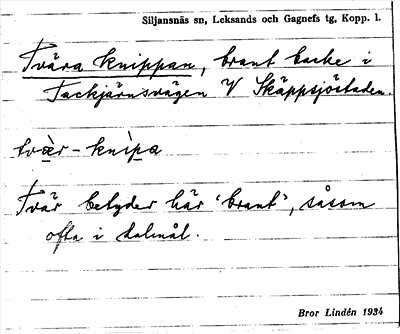 Siljansnäs sn, Leksands och Gagnefs tg, Kopp. l.
Tvära knippan, brant backe i
Tackjärnsvägen V Skäppsjöstaden.
tvær - knìpa
Tvär betyder här 'brant', såsom
ofta i dalmål.
Bror Lindén 1934